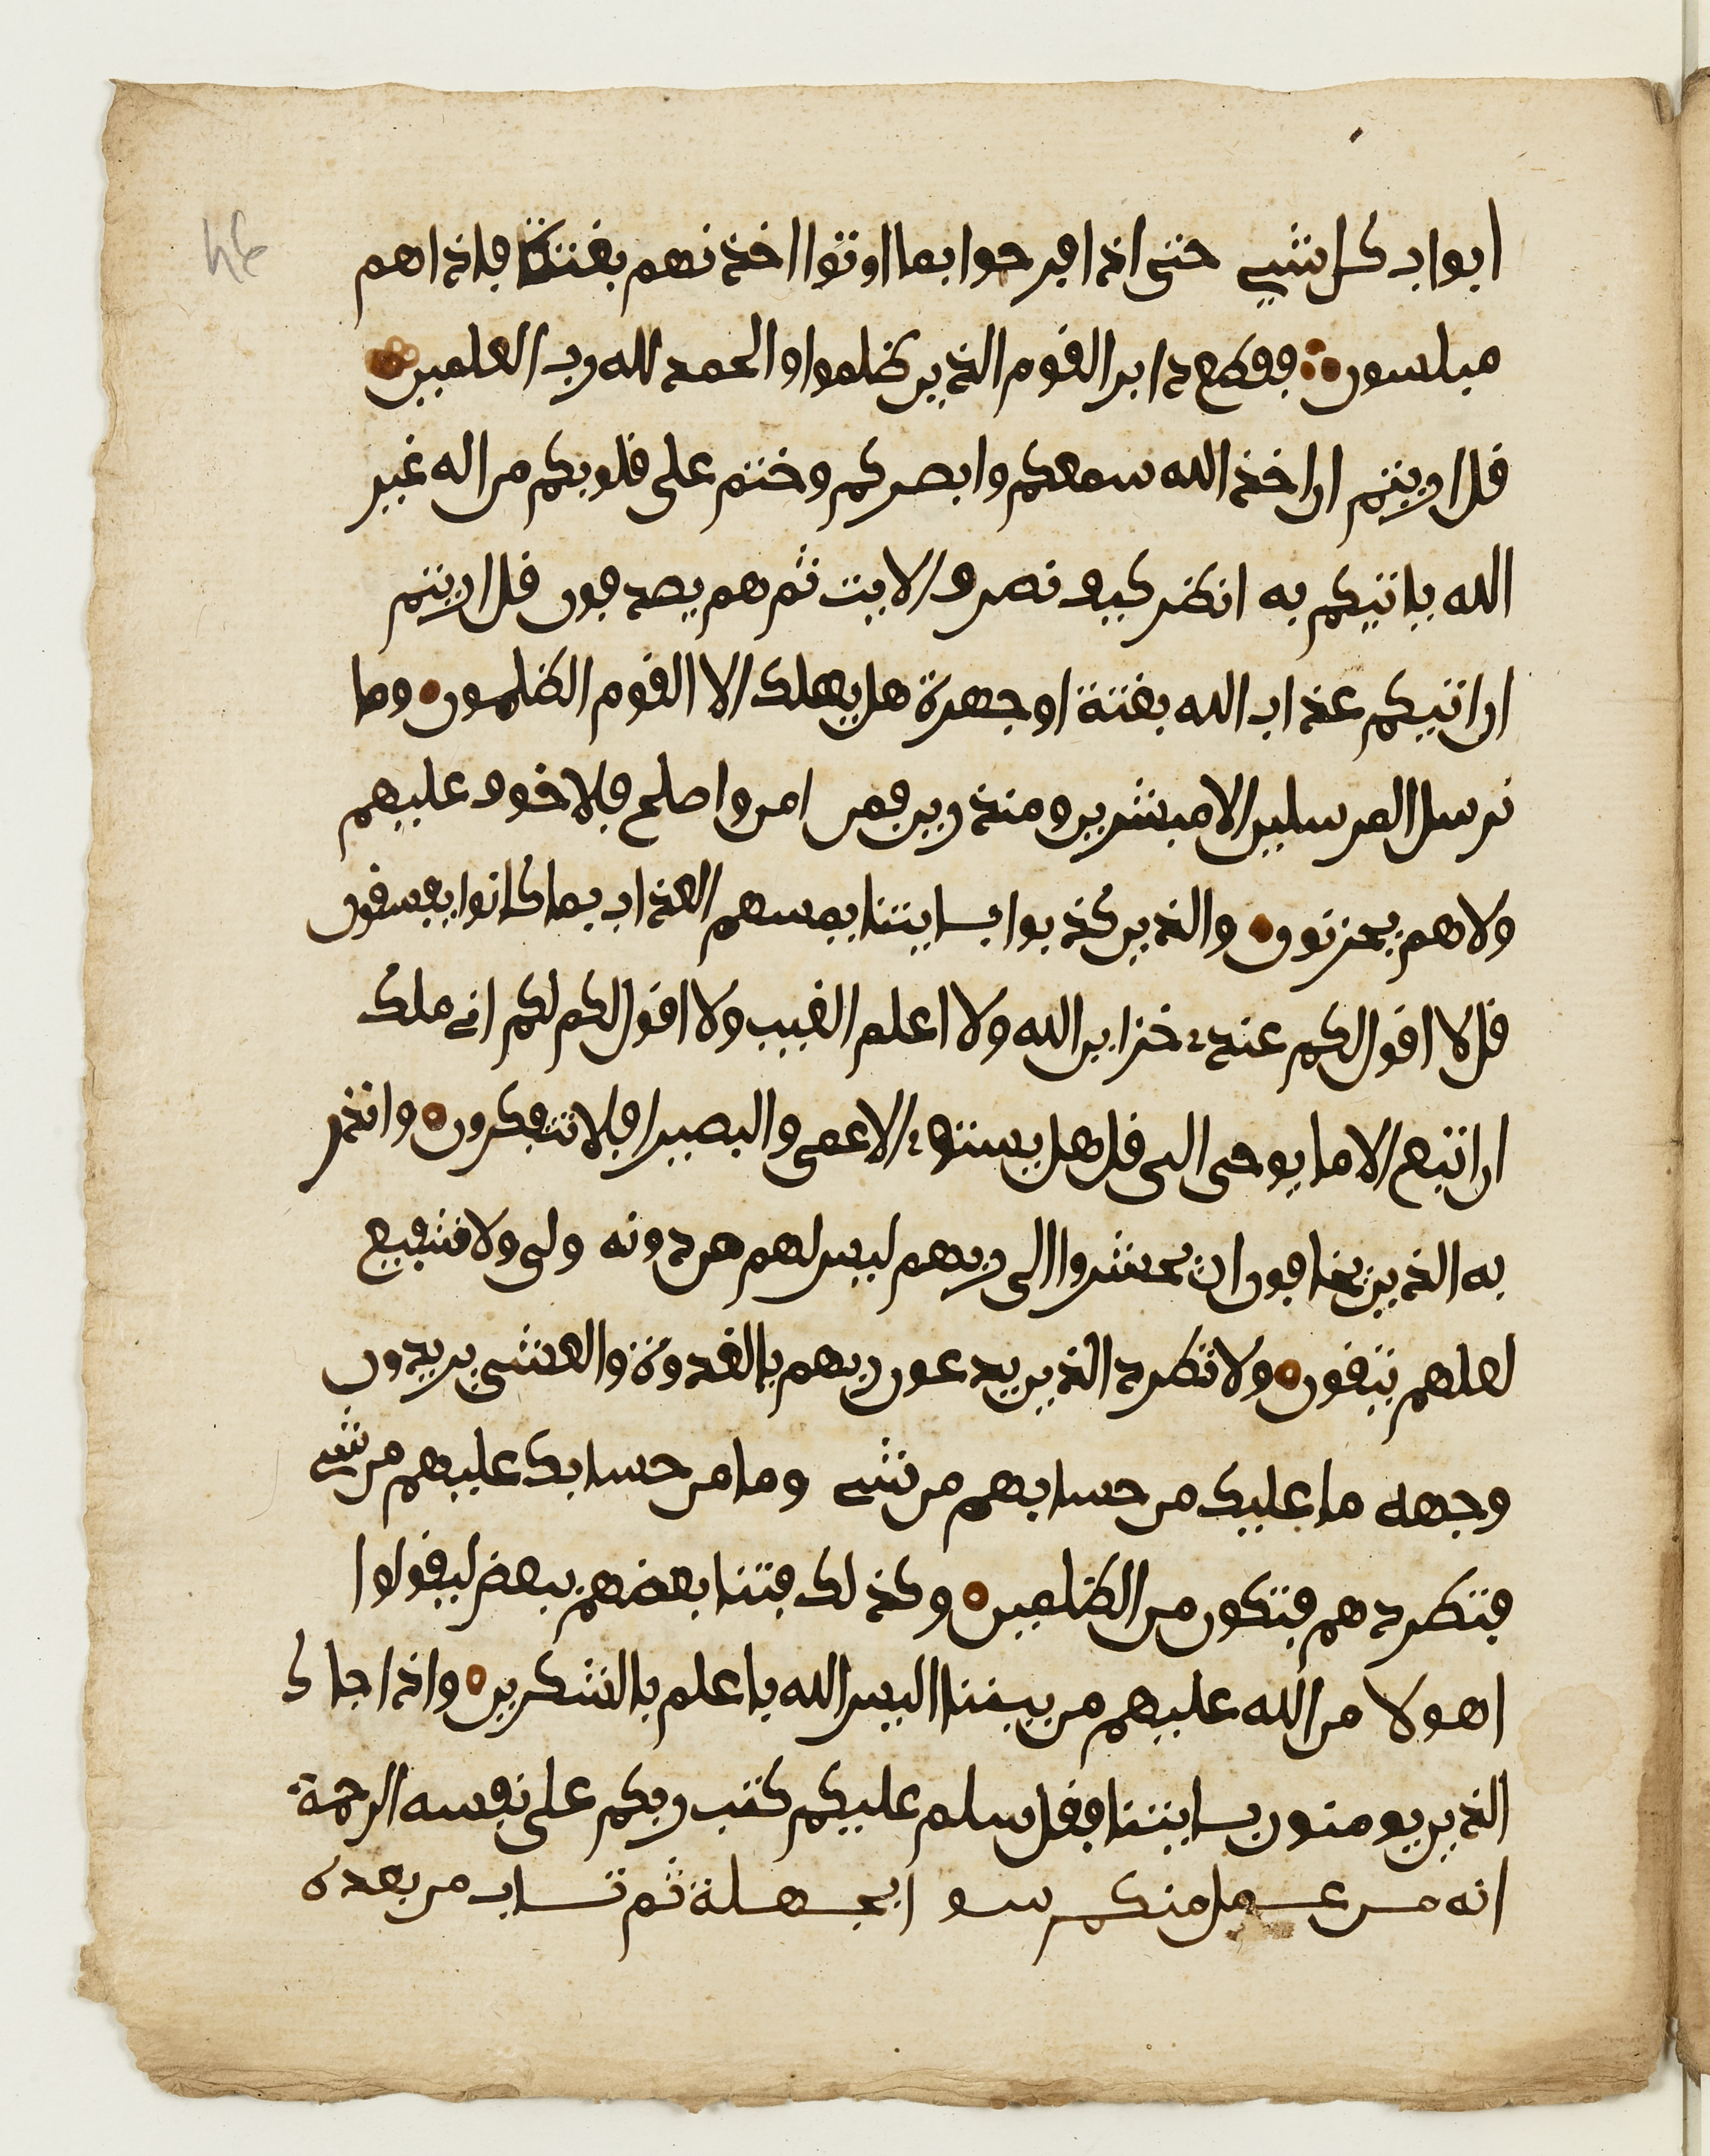 ابواب كل شي حتى اذا فرحوا بما اوتوا اخذنهم بغتة فاذا هم
مبلسون فقطع دابر القوم الذين ظلموا والحمد لله رب العلمين
قل اريتم ان اخذ الله سمعكم وابصركم وختم على قلوبكم من اله غير
الله ياتيكم به انظر كيف نصرف الايت ثم هم يصدفون قل اريتم
ان اتيكم عذاب الله بغتة او جهرة هل يهلك الا القوم الظلمون وما
نرسل المرسلين الا مبشرين ومنذرين فمن امن واصلح فلا خوف عليهم
ولا هم يحزنون والذين كذبوا بايتنا يمسهم العذاب بما كانوا يفسقون
قل لا اقول لكم عندي خزاين الله ولا اعلم الغيب ولا اقول لكم لكم اني ملك
ان اتبع الا ما يوحى الى قل هل يستوي الاعمى والبصير افلا تتفكرون وانذر
به الذين يخافون ان يحشروا الى ربهم ليس لهم من دونه ولى ولا شفيع
لعلهم يتقون ولا تطرد الذين يدعون ربهم بالغدوة والعشي يريدون
وجهه ما عليك من حسابهم من شي وما من حسابك عليهم من شي
فتطردهم فتكون من الظلمين وكذلك فتنا بعضهم ببعض ليقولوا
اهولا من الله عليهم من بيننا اليس الله باعلم بالشكرين واذا جاك
الذين يومنون بايتنا فقل سلم عليكم كتب ربكم على نفسه الرحمة
انه من عمل منكم سوا بجهلة ثم تاب من بعده